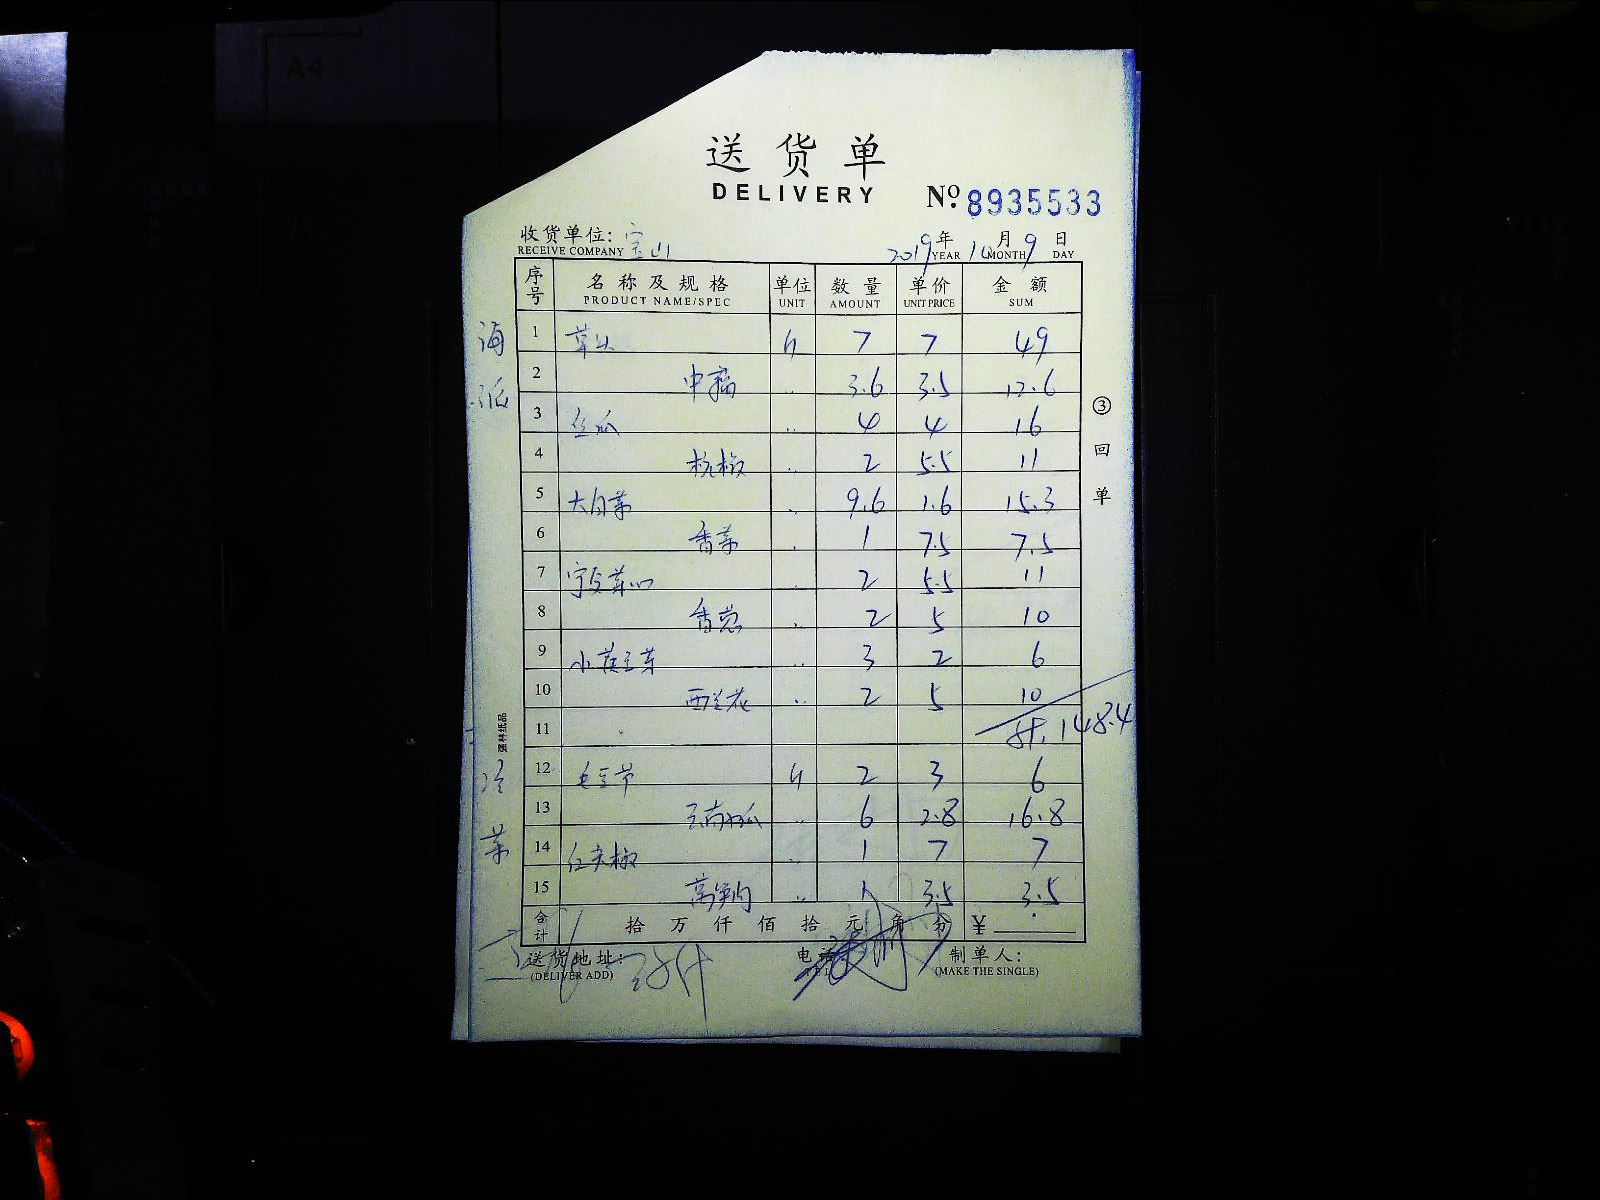 A4
送货单
DELIVERY No. 8935533
收货单位: 宝山 2019年10月9日
RECEIVE COMPANY YEAR MONTH DAY
序号 名称及规格 单位 数量 单价 金额
PRODUCT NAME/SPEC UNIT AMOUNT UNIT PRICE SUM
海派
1 草头 斤 7 7 49
2 中藕 〃 3.6 3.5 12.6
3 丝瓜 〃 4 4 16
4 杭椒 〃 2 5.5 11
5 大白菜 〃 9.6 1.6 15.3
6 香菜 〃 1 7.5 7.5
7 宁波菜心 〃 2 5.5 11
8 香葱 〃 2 5 10
9 小黄豆芽 〃 3 2 6
10 西兰花 〃 2 5 10
11 计: 148.4
冷菜
12 毛豆节 斤 2 3 6
13 云南小瓜 〃 6 2.8 16.8
14 红尖椒 〃 1 7 7
15 莴笋 〃 1 3.5 3.5
合计 拾 万 仟 佰 拾 元 角 分 ¥
送货地址: 电话: 制单人:
(DELIVER ADD) (MAKE THE SINGLE)
③回单
强林纸品